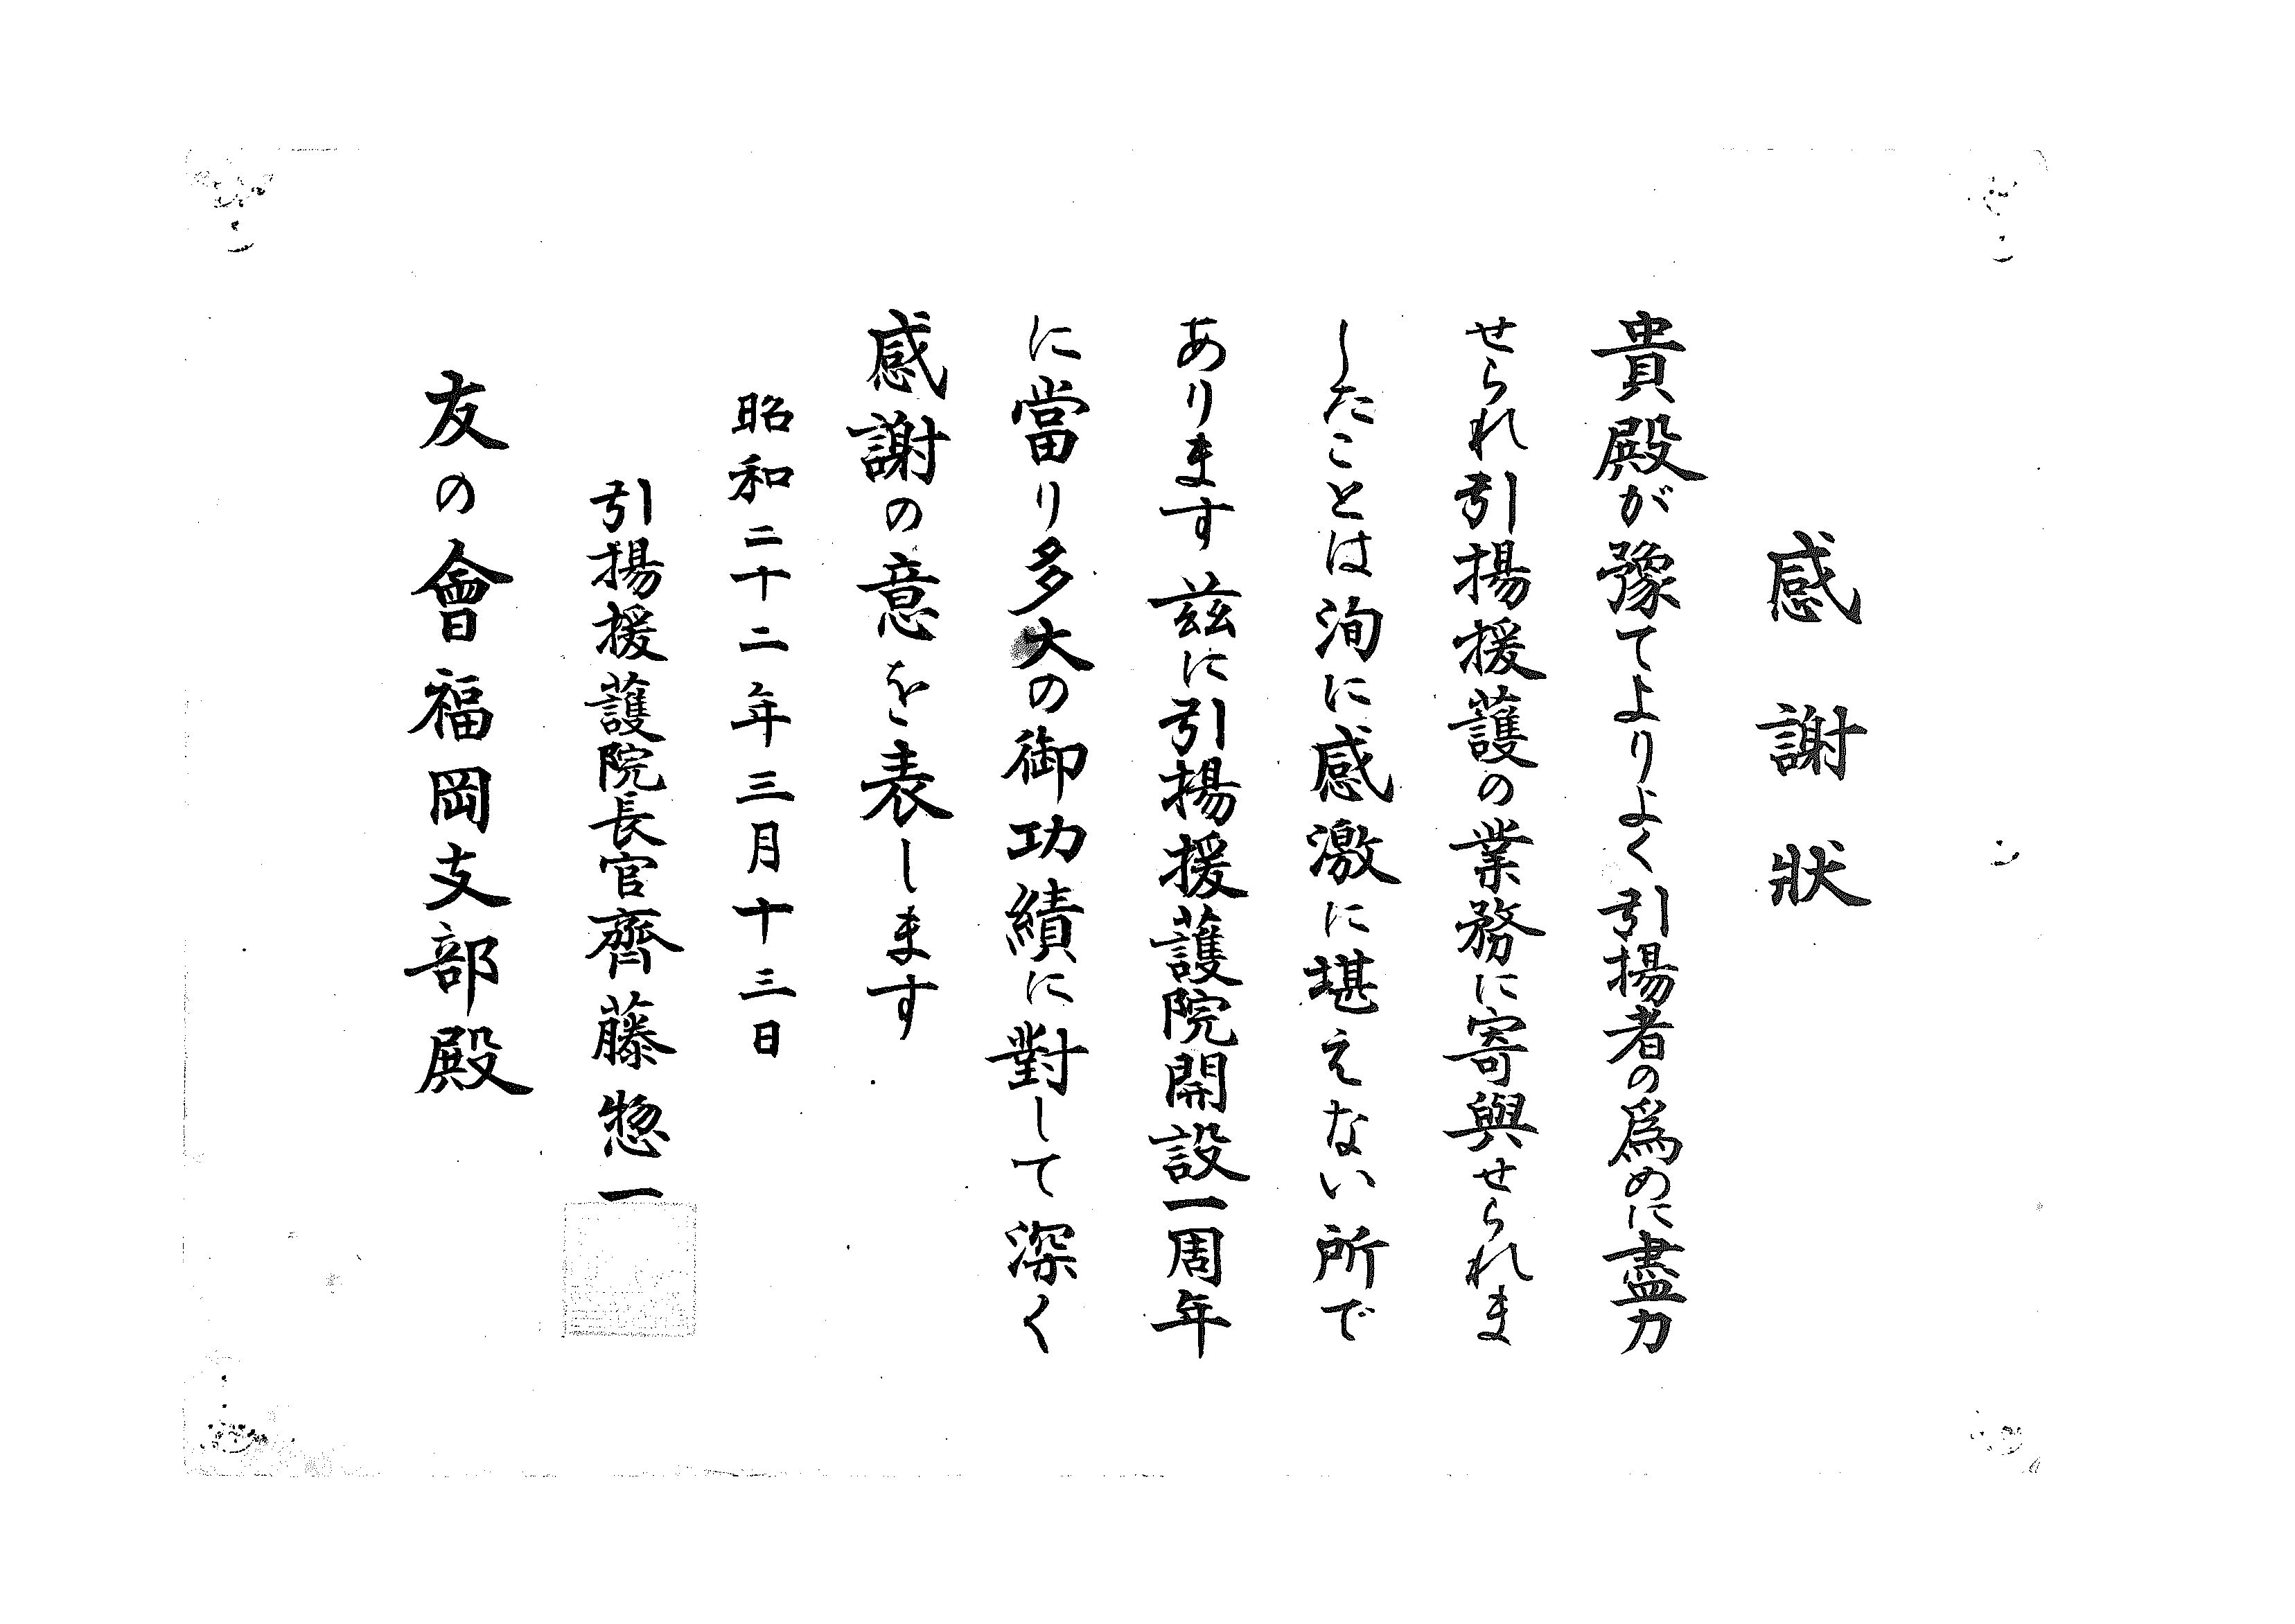 感謝狀
貴殿が豫てよりよく引揚者の爲めに盡力
せられ引揚援護の業務に寄與せられま
したことは洵に感激に堪えない所で
あります茲に引揚援護院開設一周年
に當り多大の御功績に對して深く
感謝の意を表します
昭和二十二年三月十三日
引揚援護院長官齊藤惣一
友の會福岡支部殿